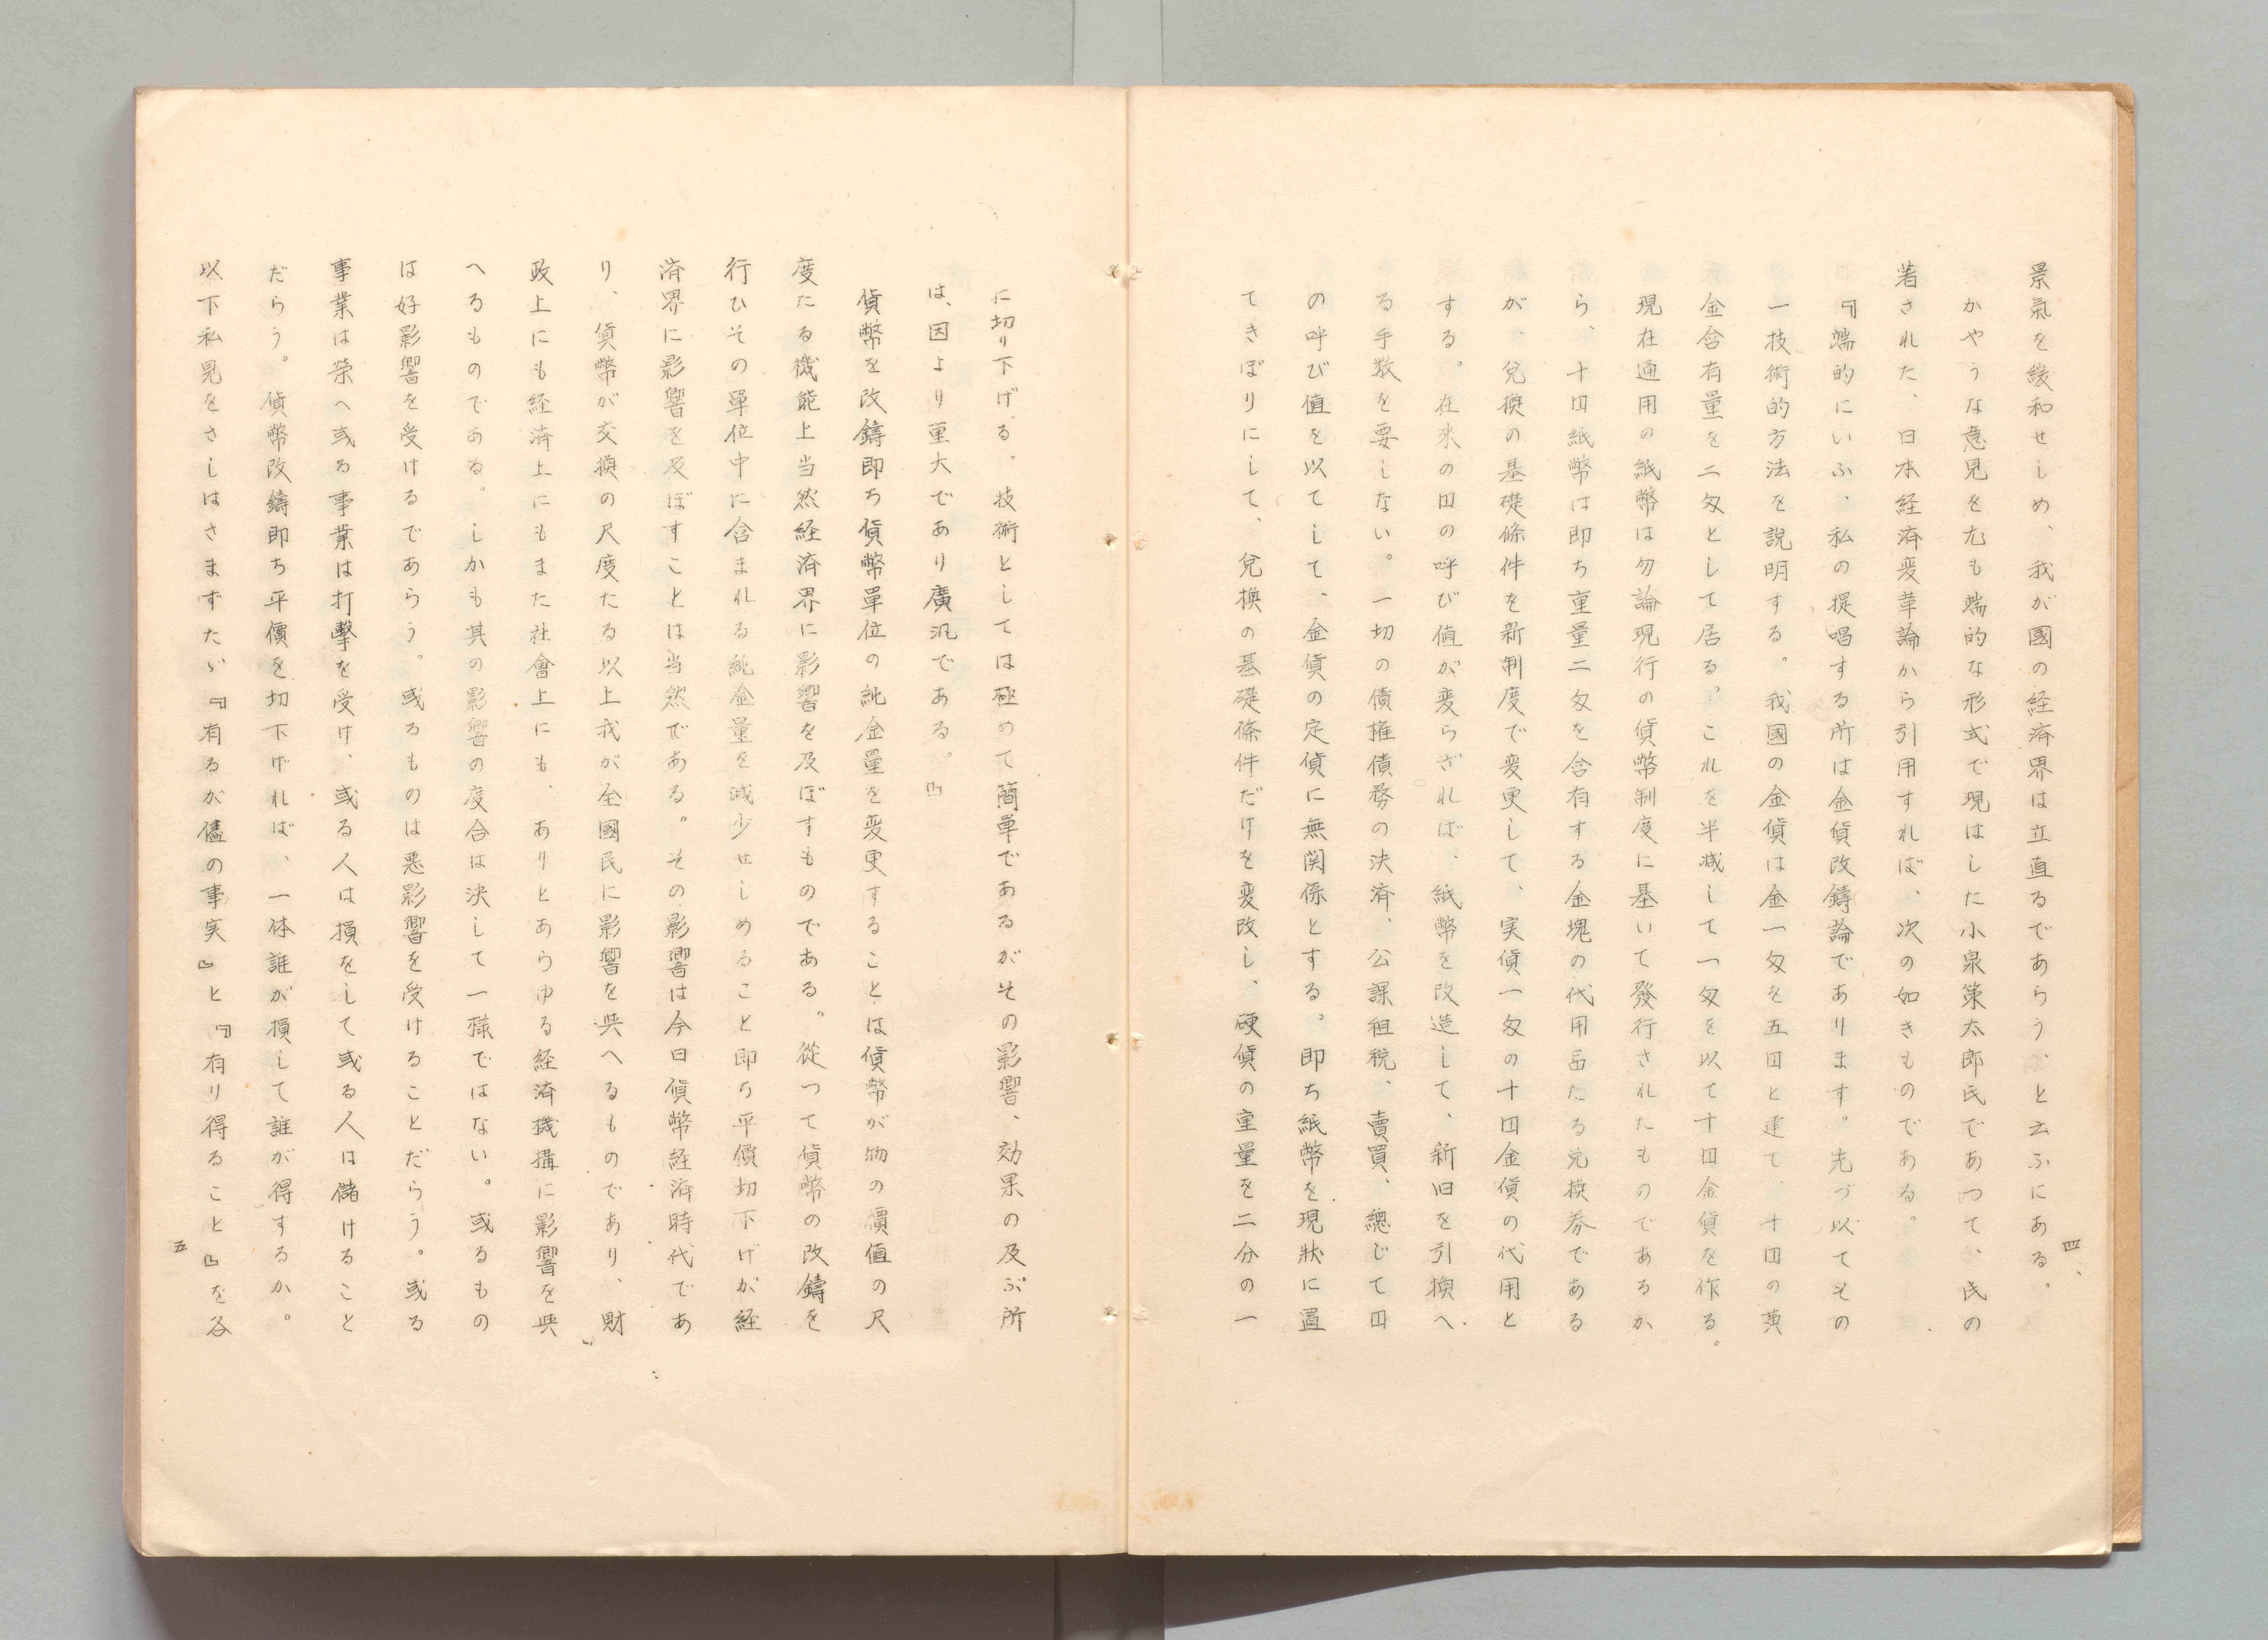 景氣を緩和せしめ、我が國の経済界は立直るであらう、と云ふにある。
かやうな意見を尢も端的な形式で現はした小泉策太郎氏であつて、氏の
著された、日本経済変革論から引用すれば、次の如きものである。
『端的にいふ、私の提唱する所は金貨改鑄論であります。先づ以てその
一技術的方法を説明する。我國の金貨は金一匁を五囙と建て、十囙の黄
金含有量を二匁として居る。これを半減して一匁を以て十囙金貨を作る。
現在通用の紙幣は勿論現行の貨幣制度に基いて發行されたものであるか
ら、十囙紙幣は即ち重量二匁を含有する金塊の代用品たる兌換券である
が、兌換の基礎條件を新制度で変更して、実貨一匁の十囙金貨の代用と
する。在來の囙の呼び値が変らざれば、紙幣を改造して、新旧を引換へ
る手数を要しない。一切の債権債務の決済、公課租税、賣買、總じて囙
の呼び値を以てして、金貨の定貨に無関係とする。即ち紙幣を現狀に置
てきぼりにして、兌換の基礎條件だけを変改し、硬貨の重量を二分の一
四
に切り下げる。技術としては極めて簡単であるがその影響、効果の及ぶ所
は、因より重大であり廣汎である。』
貨幣を改鑄即ち貨幣單位の純金量を変更することは貨幣が物の價値の尺
度たる機能上当然経済界に影響を及ぼすものである。從つて貨幣の改鑄を
行ひその單位中に含まれる純金量を減少せしめること即ち平價切下げが経
済界に影響を及ぼすことは当然である。その影響は今日貨幣経済時代であ
り、貨幣が交換の尺度たる以上我が全國民に影響を与へるものであり、財
政上にも経済上にもまた社會上にも、ありとあらゆる経済機構に影響を与
へるものである。しかも其の影響の度合は決して一様ではない。或るもの
は好影響を受けるであらう。或るものは悪影響を受けることだらう。或る
事業は榮へ或る事業は打擊を受け、或る人は損をして或る人は儲けること
だらう。貨幣改鑄即ち平價を切下げれば、一体誰が損して誰が得するか。
以下私見をさしはさまずたゞ『有るが儘の事実』と『有り得ること』を各
五